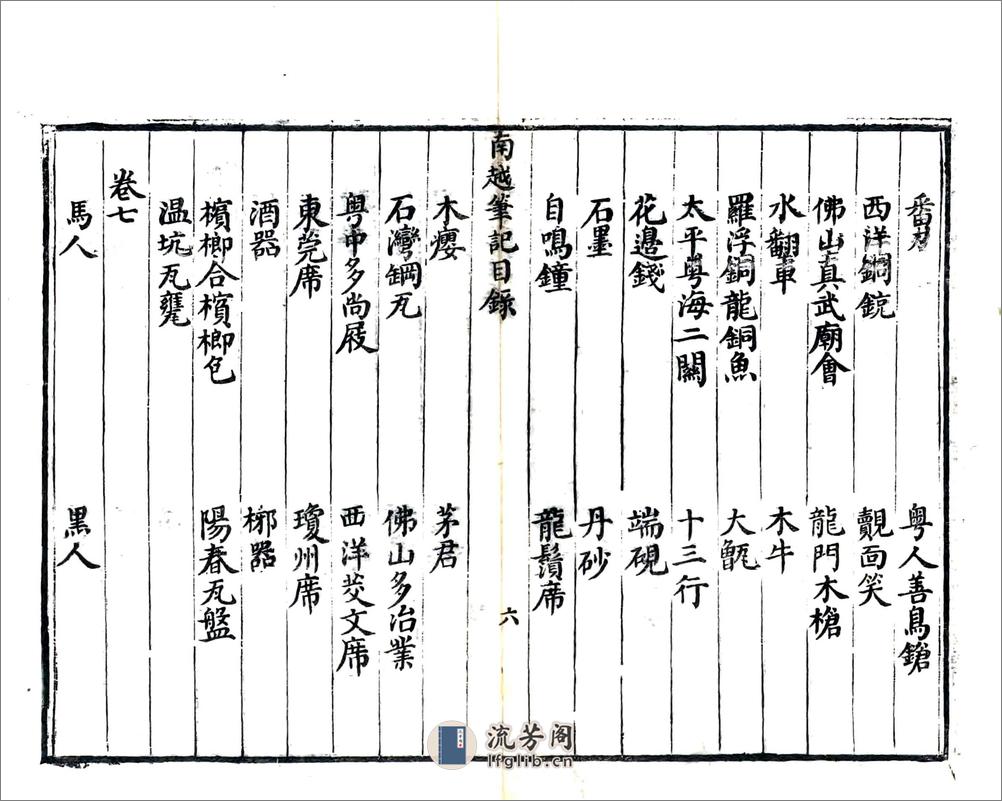 番刀　粤人善鳥鎗
西洋銅銃　覿面笑
佛山真武廟會　龍門木槍
水翻車　木牛
羅浮銅龍銅魚　大甑
太平粤海二關　十三行
花邉錢　端硯
石墨　丹砂
自鳴鐘　龍鬚席
南越筆記目錄　六
木癭　茅君
石灣鋼瓦　佛山多冶業
粤中多尚屐　西洋茭文席
東莞席　瓊州席
酒器　椰器
檳榔合檳榔包　陽春瓦盤
温坑瓦甕
卷七
馬人　黒人
流芳阁
lfglib.cn